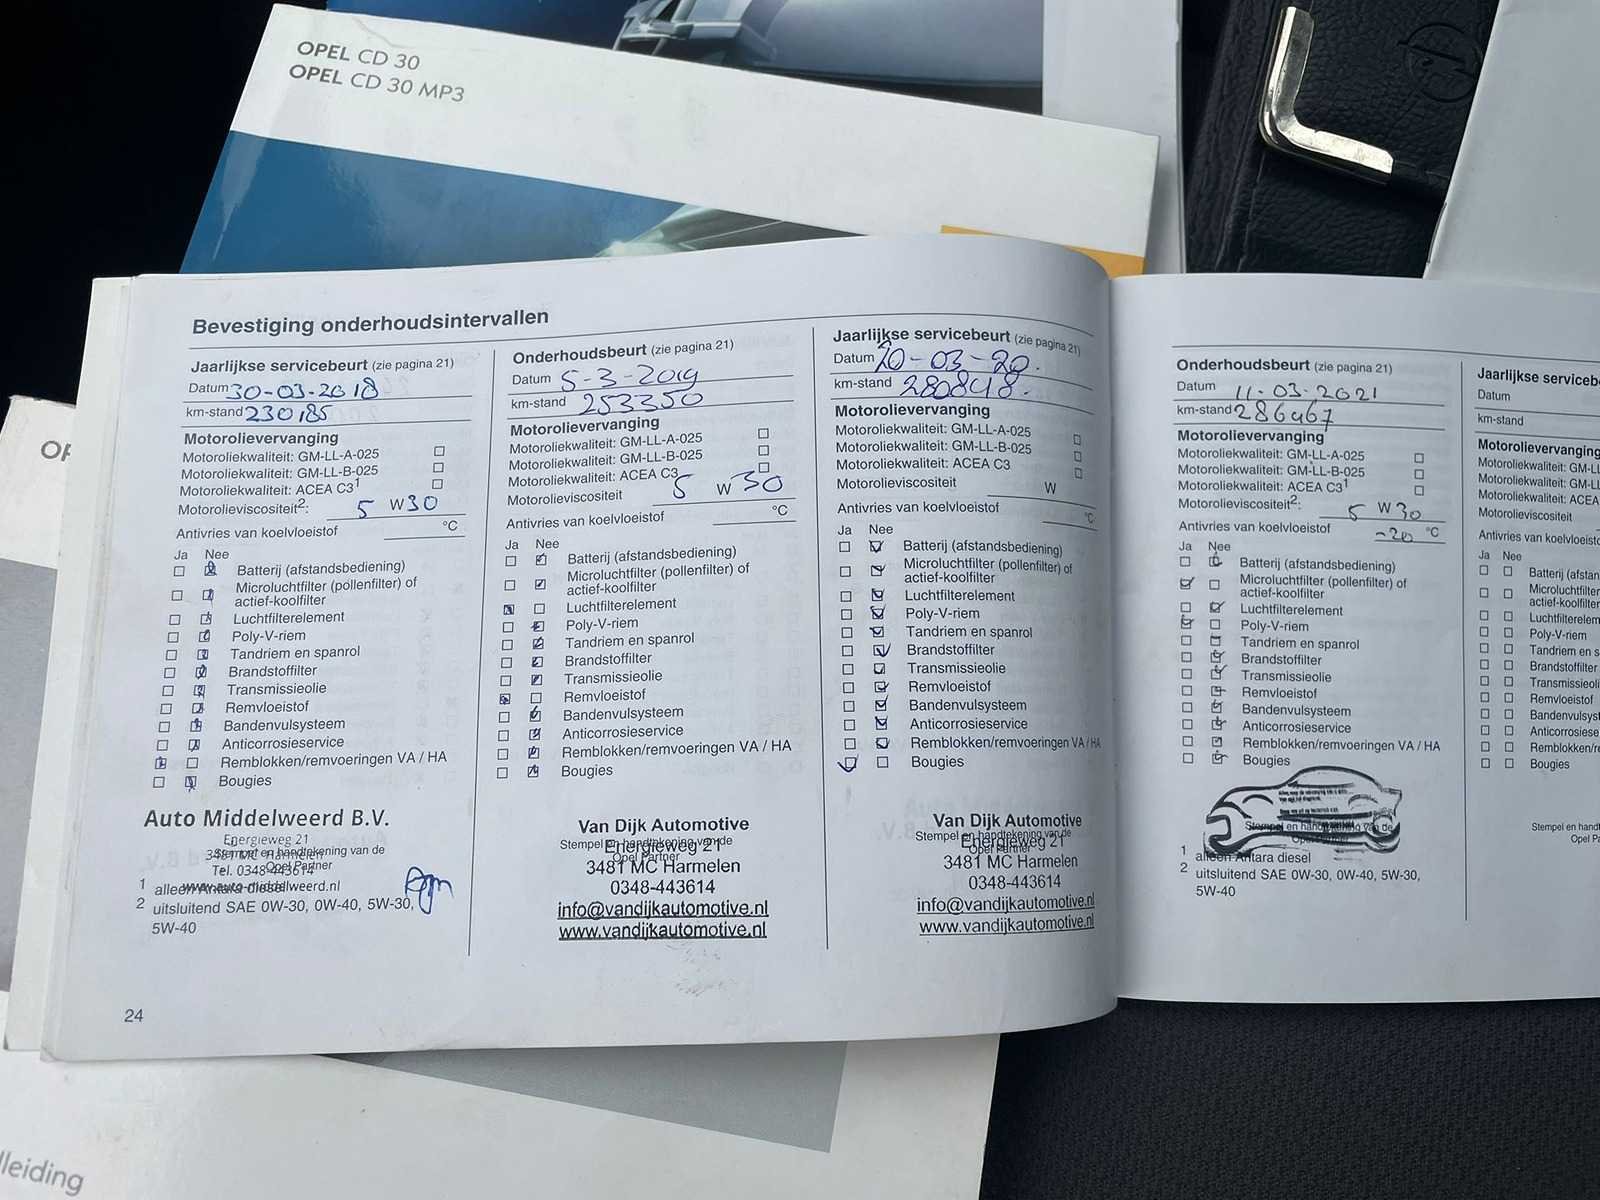 OPEL CD 30
OPEL CD 30 MP3
Bevestiging onderhoudsintervallen
Jaarlijkse servicebeurt (zie pagina 21)
Datum 30-03-2018
km-stand 230185
Motorolievervanging
Motoroliekwaliteit: GM-LL-A-025
Motoroliekwaliteit: GM-LL-B-025
Motoroliekwaliteit: ACEA C3¹
Motorolieviscositeit²: 5 W 30
Antivries van koelvloeistof °C
Ja Nee
Batterij (afstandsbediening)
Microluchtfilter (pollenfilter) of
actief-koolfilter
Luchtfilterelement
Poly-V-riem
Tandriem en spanrol
Brandstoffilter
Transmissieolie
Remvloeistof
Bandenvulsysteem
Anticorrosieservice
Remblokken/remvoeringen VA / HA
Bougies
Auto Middelweerd B.V.
Energieweg 21
3481 MC Harmelen
Stempel en handtekening van de
Opel Partner
Tel. 0348-443614
www.auto-middelweerd.nl
1 alleen Antara diesel
2 uitsluitend SAE 0W-30, 0W-40, 5W-30,
5W-40
24
Onderhoudsbeurt (zie pagina 21)
Datum 5-3-2019
km-stand 253350
Motorolievervanging
Motoroliekwaliteit: GM-LL-A-025
Motoroliekwaliteit: GM-LL-B-025
Motoroliekwaliteit: ACEA C3
Motorolieviscositeit 5 W 30
Antivries van koelvloeistof °C
Ja Nee
Batterij (afstandsbediening)
Microluchtfilter (pollenfilter) of
actief-koolfilter
Luchtfilterelement
Poly-V-riem
Tandriem en spanrol
Brandstoffilter
Transmissieolie
Remvloeistof
Bandenvulsysteem
Anticorrosieservice
Remblokken/remvoeringen VA / HA
Bougies
Van Dijk Automotive
Stempel en handtekening van de
Opel Partner
Energieweg 21
3481 MC Harmelen
0348-443614
info@vandijkautomotive.nl
www.vandijkautomotive.nl
Jaarlijkse servicebeurt (zie pagina 21)
Datum 20-03-20.
km-stand 280848.
Motorolievervanging
Motoroliekwaliteit: GM-LL-A-025
Motoroliekwaliteit: GM-LL-B-025
Motoroliekwaliteit: ACEA C3
Motorolieviscositeit W
Antivries van koelvloeistof °C
Ja Nee
Batterij (afstandsbediening)
Microluchtfilter (pollenfilter) of
actief-koolfilter
Luchtfilterelement
Poly-V-riem
Tandriem en spanrol
Brandstoffilter
Transmissieolie
Remvloeistof
Bandenvulsysteem
Anticorrosieservice
Remblokken/remvoeringen VA / HA
Bougies
Van Dijk Automotive
Stempel en handtekening van de
Opel Partner
Energieweg 21
3481 MC Harmelen
0348-443614
info@vandijkautomotive.nl
www.vandijkautomotive.nl
Onderhoudsbeurt (zie pagina 21)
Datum 11-03-2021
km-stand 286467
Motorolievervanging
Motoroliekwaliteit: GM-LL-A-025
Motoroliekwaliteit: GM-LL-B-025
Motoroliekwaliteit: ACEA C3¹
Motorolieviscositeit²: 5 W 30
Antivries van koelvloeistof -20 °C
Ja Nee
Batterij (afstandsbediening)
Microluchtfilter (pollenfilter) of
actief-koolfilter
Luchtfilterelement
Poly-V-riem
Tandriem en spanrol
Brandstoffilter
Transmissieolie
Remvloeistof
Bandenvulsysteem
Anticorrosieservice
Remblokken/remvoeringen VA / HA
Bougies
Stempel en handtekening van de
Opel Partner
1 alleen Antara diesel
2 uitsluitend SAE 0W-30, 0W-40, 5W-30,
5W-40
Jaarlijkse servicebe
Datum
km-stand
Motorolievervanging
Motoroliekwaliteit: GM-L
Motoroliekwaliteit: GM-LL
Motoroliekwaliteit: ACEA
Motorolieviscositeit
Antivries van koelvloeisto
Ja Nee
Batterij (afstan
Microluchtfilter
actief-koolfilte
Luchtfiltereleme
Poly-V-riem
Tandriem en s
Brandstoffilter
Transmissieoli
Remvloeistof
Bandenvulsyst
Anticorrosiese
Remblokken/re
Bougies
Stempel en handt
Opel Pa
leiding